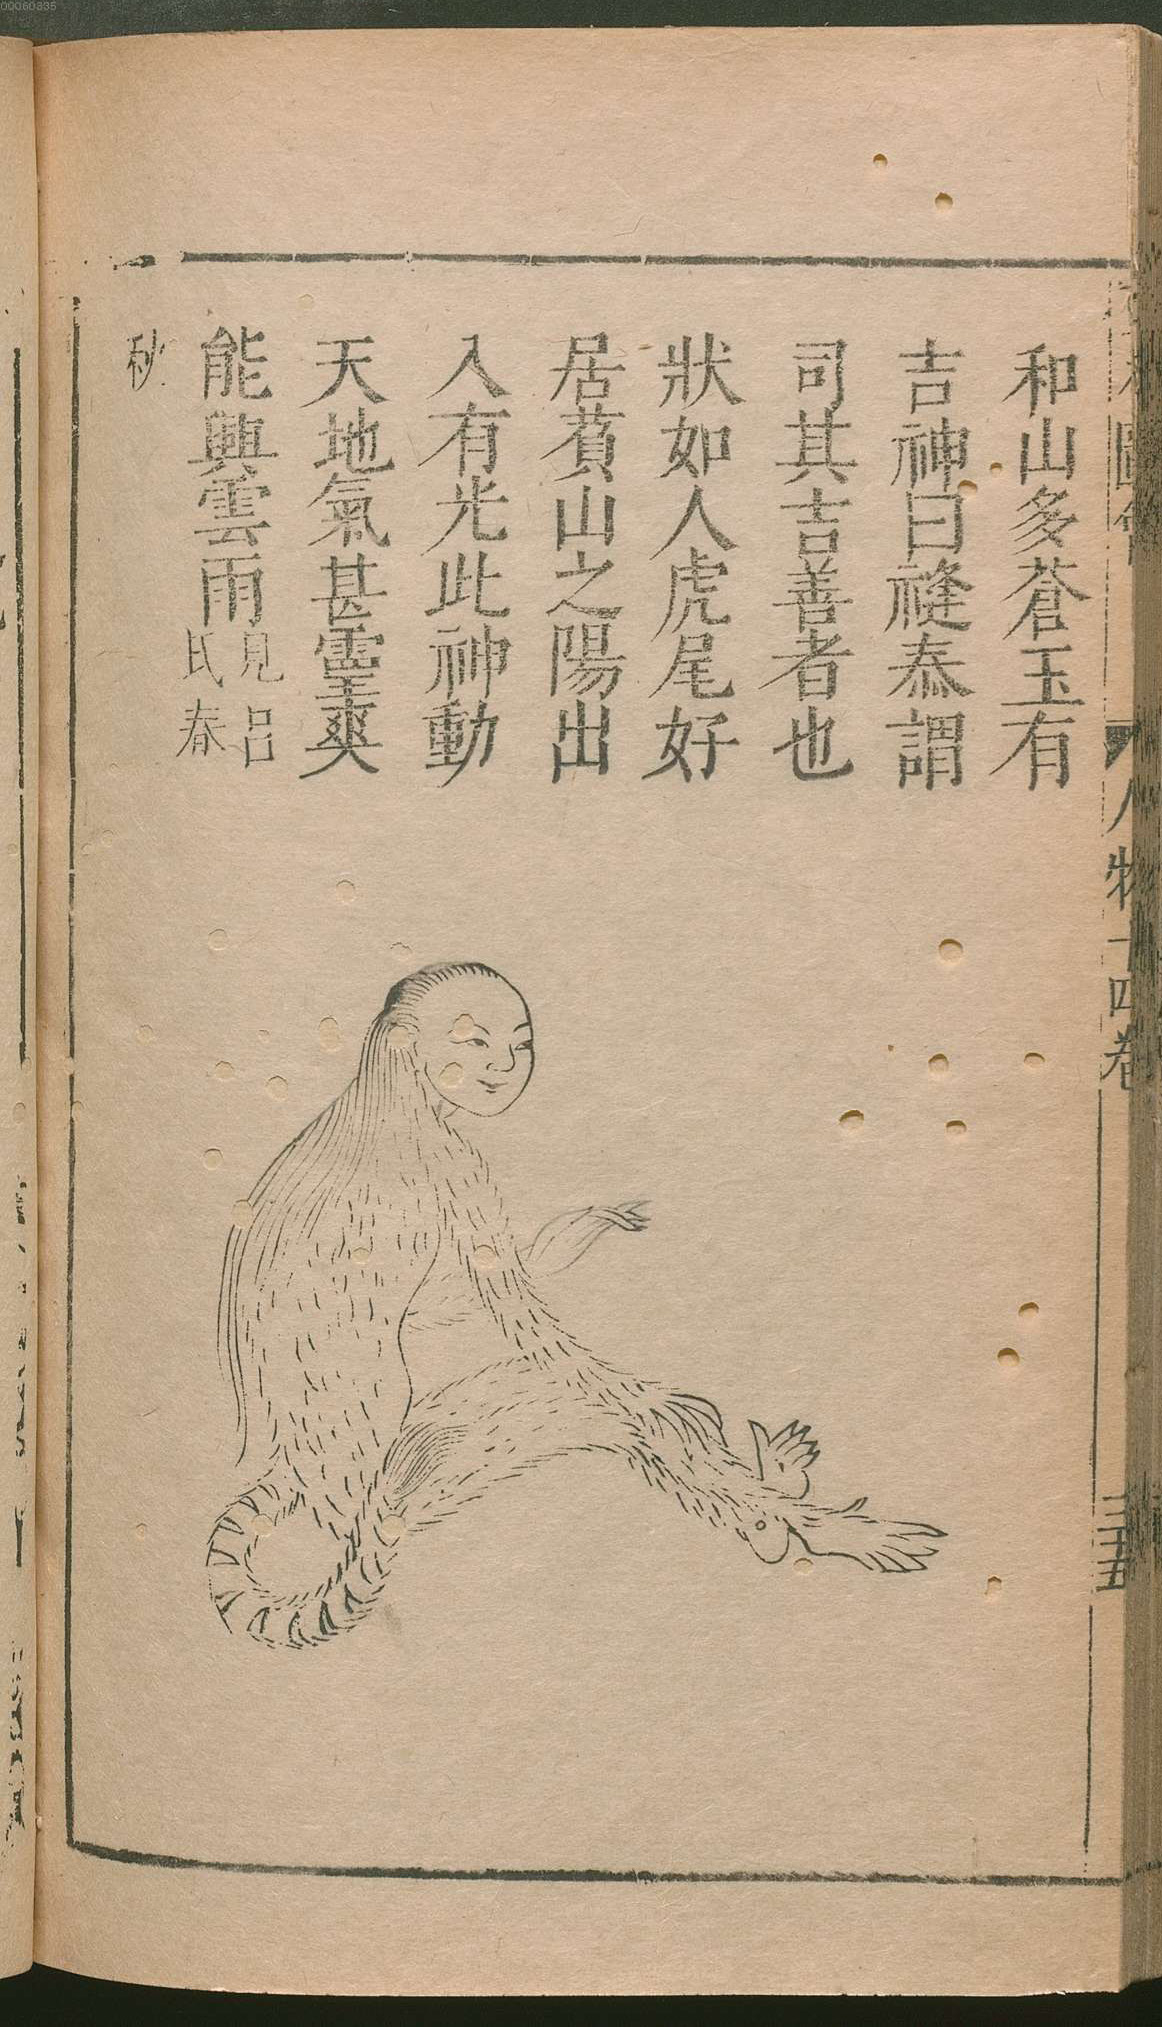 和山多蒼玉有
吉神曰䙜泰謂
司其吉善者也
狀如人虎尾好
居萯山之陽出
入有光此神動
天地氣甚靈爽
能興雲雨見呂
氏春
秋
人物十四卷
三十五
00060835